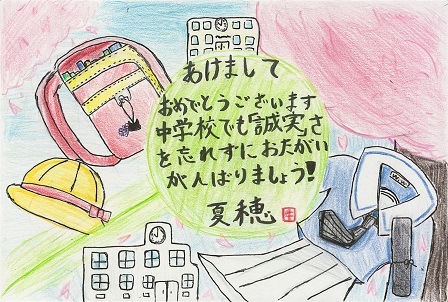 あけまして
おめでとうございます
中学校でも「誠実」さ
を忘れずにおたがい
がんばりましょう!
夏穂